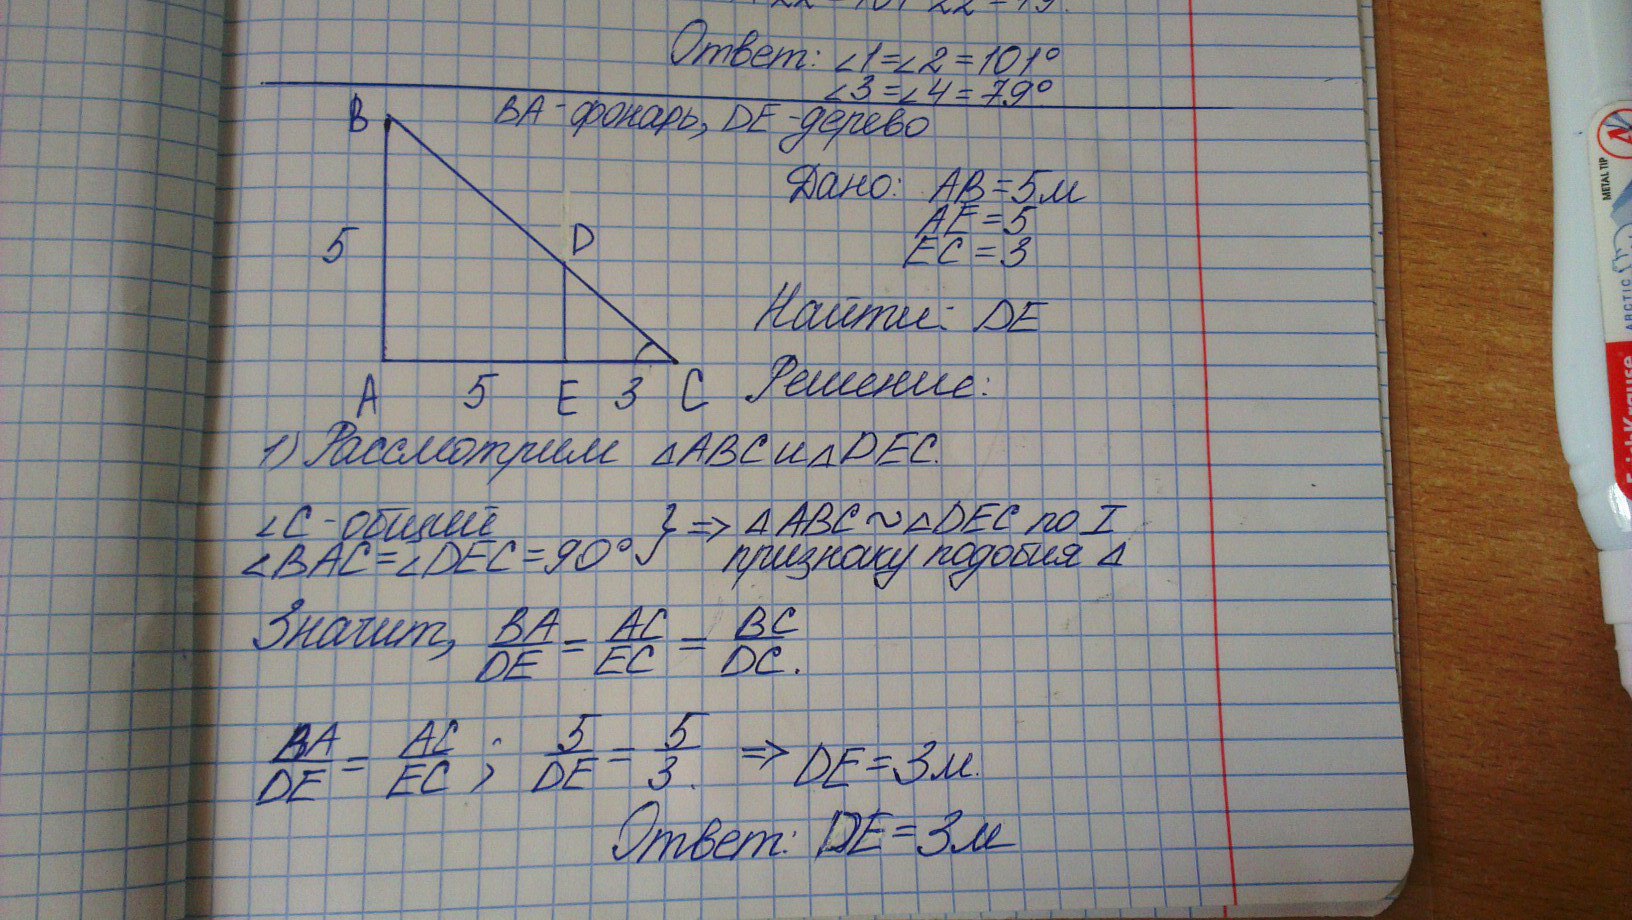 Ответ: ∠1=∠2=101°
∠3=∠4=79°
BA-фонарь, DE-дерево
B
Дано: AB=5м
AE=5
EC=3
5
D
Найти: DE
A 5 E 3 C
Решение:
1) Рассмотрим △ABC и △DEC.
∠C-общий
∠BAC=∠DEC=90° } => △ABC ~ △DEC по I
признаку подобия △
Значит, BA/DE = AC/EC = BC/DC.
BA/DE = AC/EC ; 5/DE = 5/3. => DE=3м.
Ответ: DE=3м
METAL TIP
ARCTIC
ErichKrause